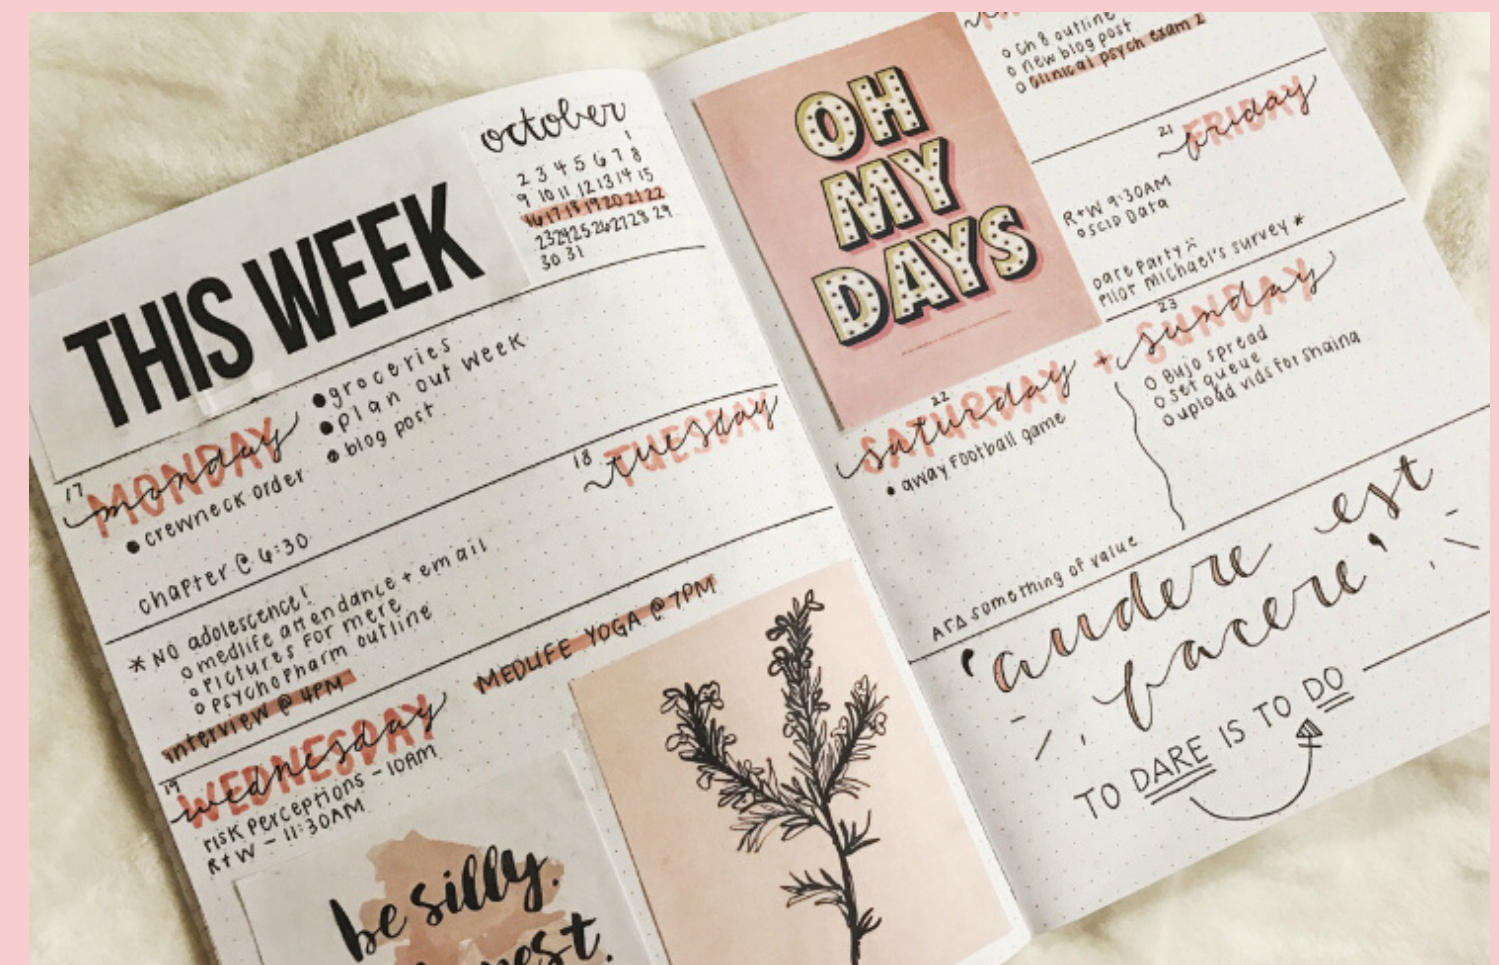 THIS WEEK
october
1
2 3 4 5 6 7 8
9 10 11 12 13 14 15
16 17 18 19 20 21 22
23 24 25 26 27 28 29
30 31
17
MONDAY
monday
groceries
plan out week
blog post
crewneck order
chapter @ 6:30
18
TUESDAY
tuesday
* NO adolescence!
o medlife attendance + email
o pictures for mere
o psychopharm outline
interview @ 4PM
19
WEDNESDAY
wednesday
MEDLIFE YOGA @ 7PM
risk perceptions - 10AM
R+W - 11:30AM
be silly.
OH
MY
DAYS
o ch 8 outline
o new blog post
o clinical psych exam 2
21
FRIDAY
friday
R+W 9:30AM
o SCID Data
Date Party
Pilot Michael's survey *
22
SATURDAY
saturday
+
23
SUNDAY
sunday
away football game
o Bujo spread
o set queue
o upload vids for shaina
ATΔ something of value
'audere est
facere'
TO DARE IS TO DO